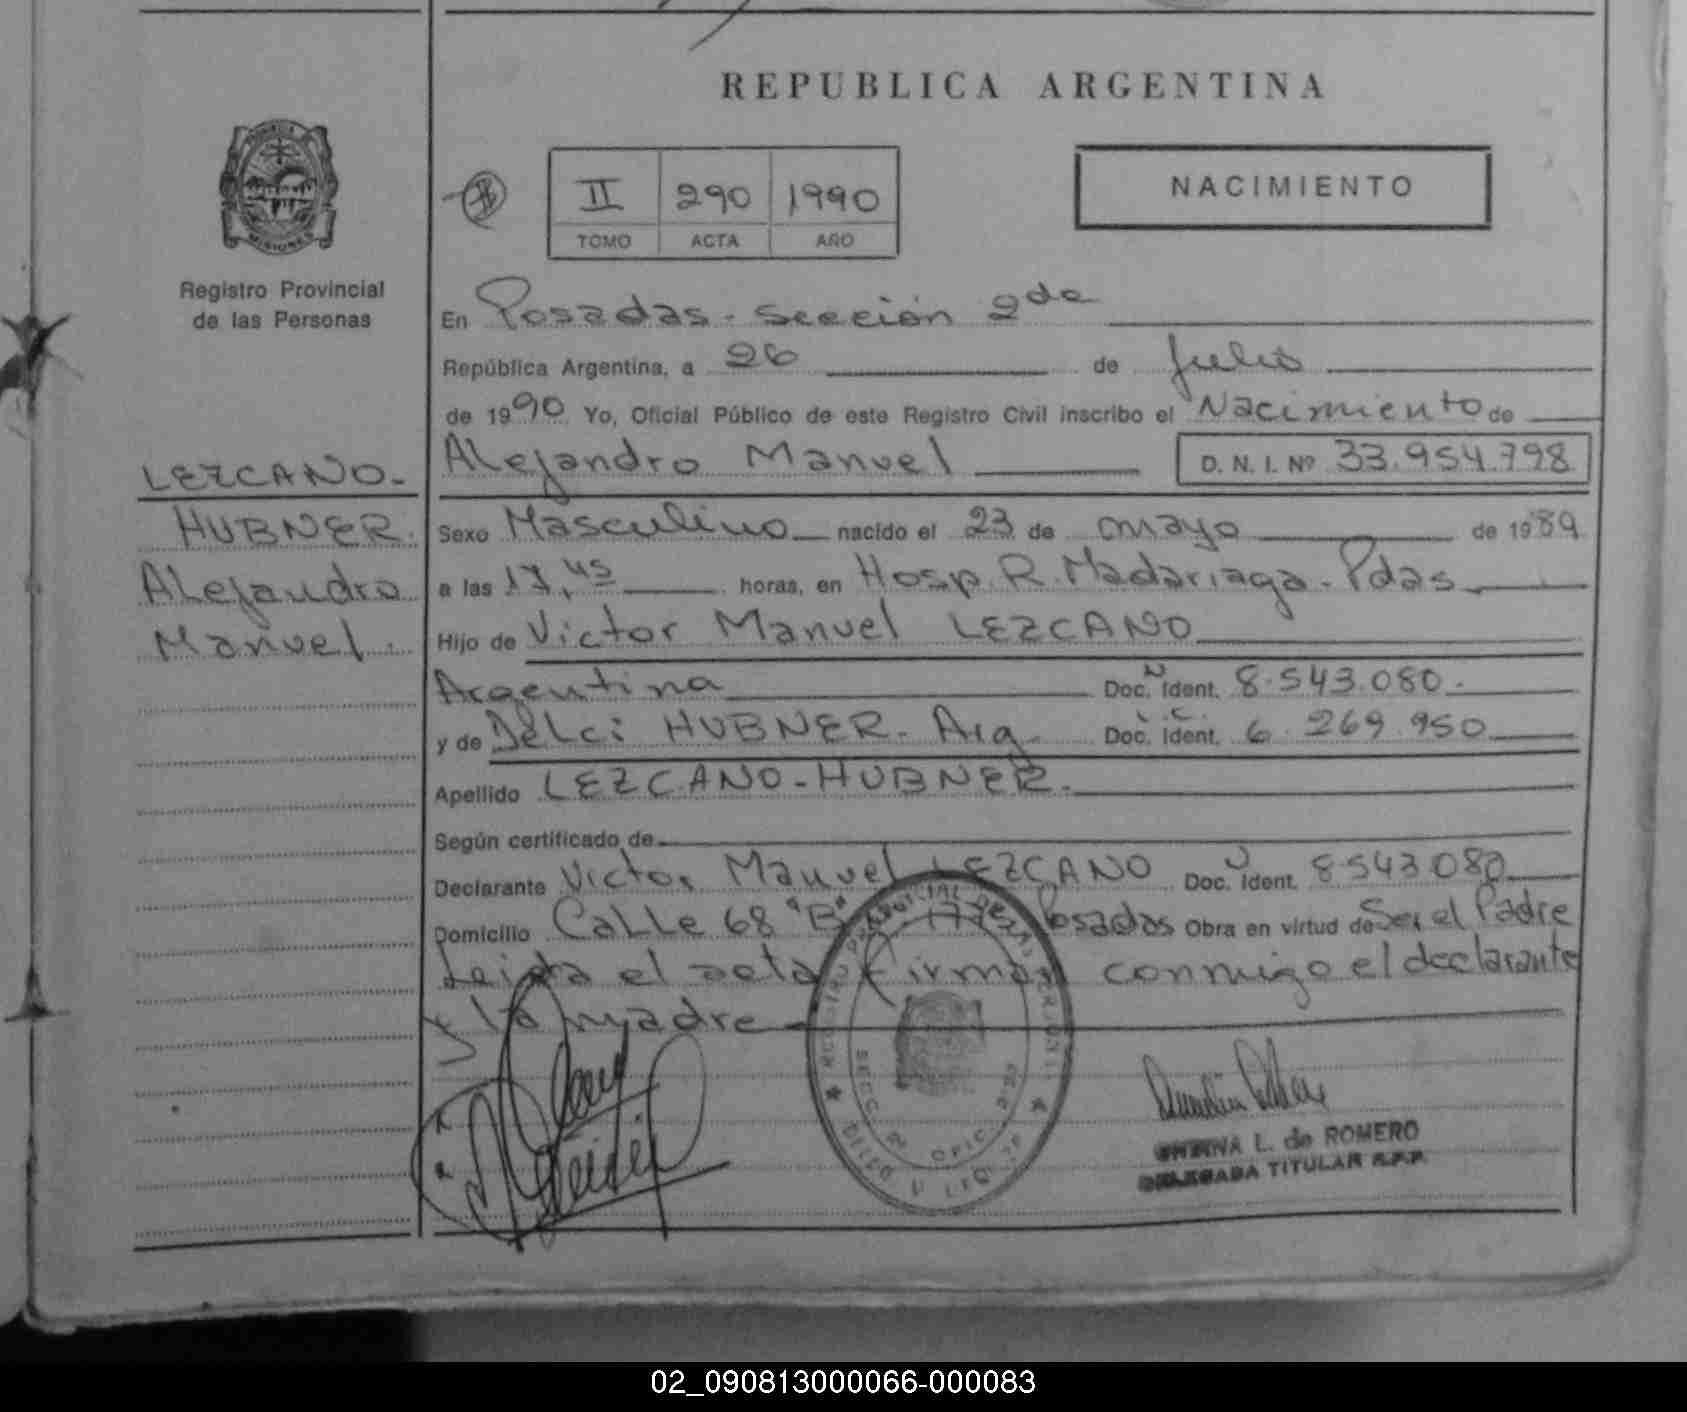 REPUBLICA ARGENTINA
NACIMIENTO
II 290 1990
TOMO ACTA AÑO
MISIONES
Registro Provincial
de las Personas
En Posadas - Sección 2da
República Argentina, a 26 de Julio
de 1990 Yo, Oficial Público de este Registro Civil inscribo el Nacimiento de
Alejandro Manuel D. N. I. Nº 33.954.798
LEZCANO-
HUBNER.
Alejandro
Manuel.
Sexo Masculino nacido el 23 de mayo de 1989
a las 17,45 horas, en Hosp. R. Madariaga - Pdas
Hijo de Victor Manuel LEZCANO
Argentina Doc. Ident. 8.543.080.
y de Delci HUBNER - Arg. Doc. Ident. 6.269.950
Apellido LEZCANO-HUBNER.
Según certificado de
Declarante Victor Manuel LEZCANO Doc. Ident. 8.543.080
Domicilio Calle 68 "B" Posadas Obra en virtud de Ser el Padre
Leida el acta firman conmigo el declarante
y la madre
L. de ROMERO
DELEGADA TITULAR R.P.P.
02_090813000066-000083